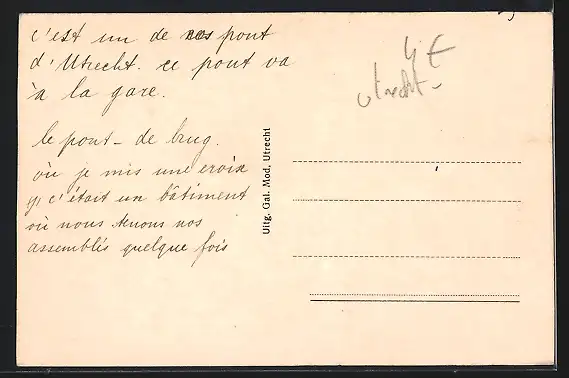 c'est un de nos pont
d'Utrecht. ce pont va
à la gare.
le pont - de brug.
où je mis une croix
c'était un bâtiment
où nous tenons nos
assemblés quelque fois
Uitg. Gal. Mod, Utrecht
4 €
utrecht-